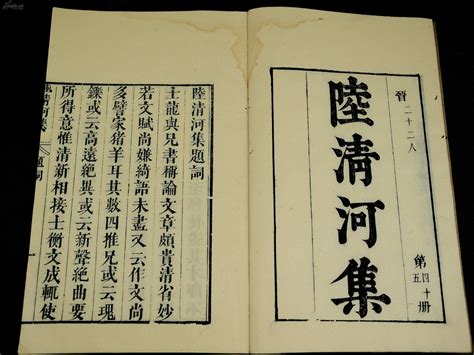 晉 二十二人
陸清河集
第四十五册
陸清河集題詞
士龍與兄書稱論文章頗貴清省妙
若文賦尚嫌綺語未盡又云作文尚
多譬家猪羊耳其數四推兄或云瑰
鑠或云高遠絕異或云新聲絕曲要
所得意惟清新相接士衡文成輒使
陸清河集 題詞 一